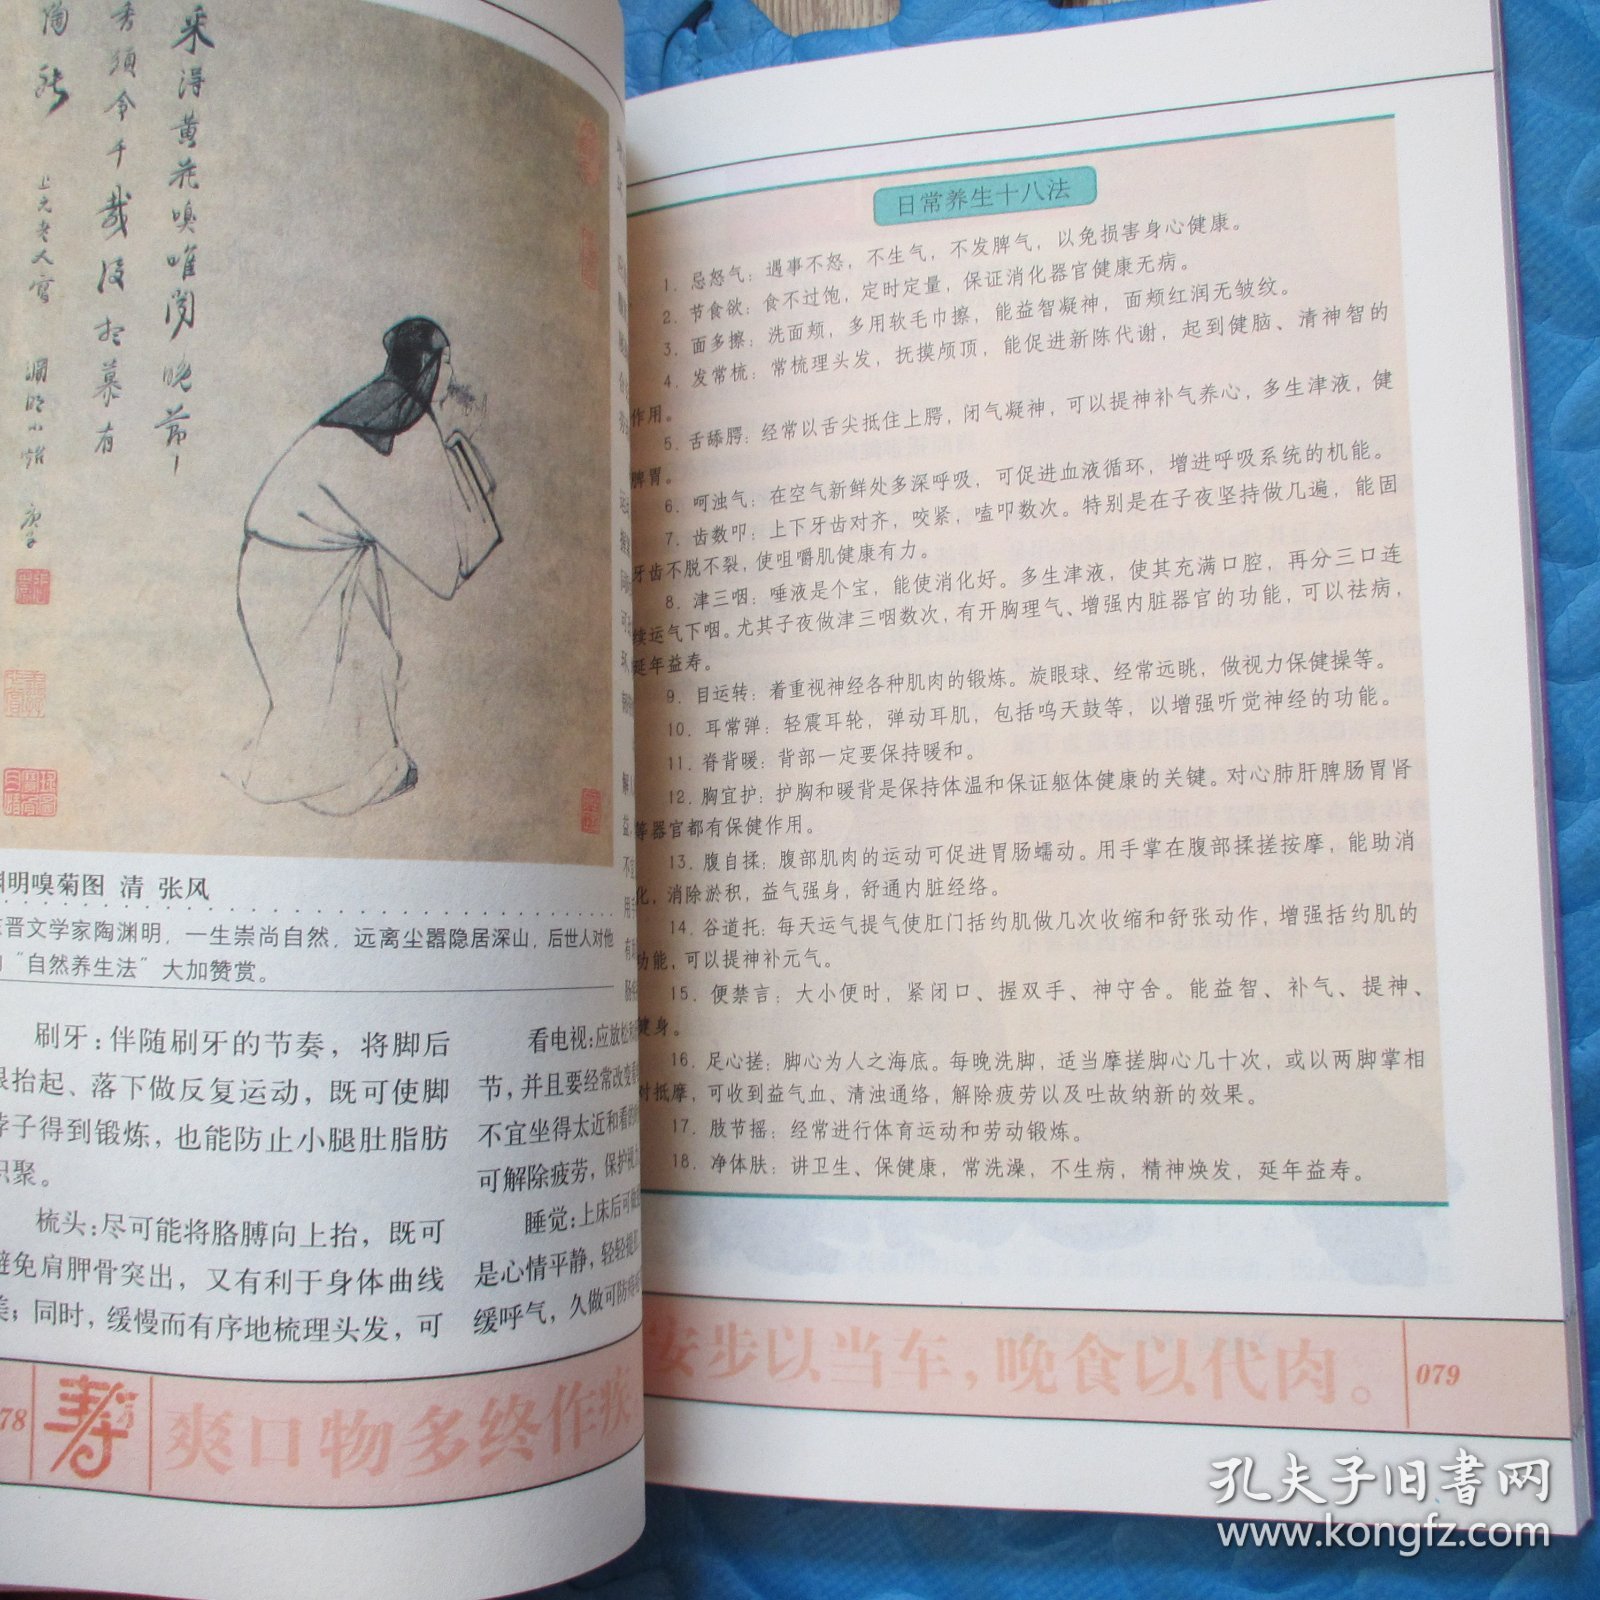 采得黄花嗅唯闻晚节
香须令千载后想慕有
陶能
上元老人写
渊明小照
渊明嗅菊图 清 张风
晋文学家陶渊明，一生崇尚自然，远离尘嚣隐居深山，后世人对他
“自然养生法”大加赞赏。
刷牙：伴随刷牙的节奏，将脚后
跟抬起、落下做反复运动，既可使脚
脖子得到锻炼，也能防止小腿肚脂肪
积聚。
梳头：尽可能将胳膊向上抬，既可
避免肩胛骨突出，又有利于身体曲线
美；同时，缓慢而有序地梳理头发，可
看电视：应放松
节，并且要经常改变
不宜坐得太近和看
可解除疲劳，保护
睡觉：上床后可
是心情平静，轻轻
缓呼气，久做可防
78
寿
爽口物多终作疾
日常养生十八法
1. 忌怒气：遇事不怒，不生气，不发脾气，以免损害身心健康。
2. 节食欲：食不过饱，定时定量，保证消化器官健康无病。
3. 面多擦：洗面颊，多用软毛巾擦，能益智凝神，面颊红润无皱纹。
4. 发常梳：常梳理头发，抚摸颅顶，能促进新陈代谢，起到健脑、清神智的
作用。
5. 舌舔腭：经常以舌尖抵住上腭，闭气凝神，可以提神补气养心，多生津液，健
脾胃。
6. 呵浊气：在空气新鲜处多深呼吸，可促进血液循环，增进呼吸系统的机能。
7. 齿数叩：上下牙齿对齐，咬紧，嗑叩数次。特别是在子夜坚持做几遍，能固
牙齿不脱不裂，使咀嚼肌健康有力。
8. 津三咽：唾液是个宝，能使消化好。多生津液，使其充满口腔，再分三口连
续运气下咽。尤其子夜做津三咽数次，有开胸理气、增强内脏器官的功能，可以祛病，
延年益寿。
9. 目运转：着重视神经各种肌肉的锻炼。旋眼球、经常远眺，做视力保健操等。
10. 耳常弹：轻震耳轮，弹动耳肌，包括鸣天鼓等，以增强听觉神经的功能。
11. 脊背暖：背部一定要保持暖和。
12. 胸宜护：护胸和暖背是保持体温和保证躯体健康的关键。对心肺肝脾肠胃肾
等器官都有保健作用。
13. 腹自揉：腹部肌肉的运动可促进胃肠蠕动。用手掌在腹部揉搓按摩，能助消
化，消除淤积，益气强身，舒通内脏经络。
14. 谷道托：每天运气提气使肛门括约肌做几次收缩和舒张动作，增强括约肌的
功能，可以提神补元气。
15. 便禁言：大小便时，紧闭口、握双手、神守舍。能益智、补气、提神、
健身。
16. 足心搓：脚心为人之海底。每晚洗脚，适当摩搓脚心几十次，或以两脚掌相
对抵摩，可收到益气血、清浊通络，解除疲劳以及吐故纳新的效果。
17. 肢节摇：经常进行体育运动和劳动锻炼。
18. 净体肤：讲卫生、保健康，常洗澡，不生病，精神焕发，延年益寿。
安步以当车，晚食以代肉。
079
孔夫子旧书网
www.kongfz.com